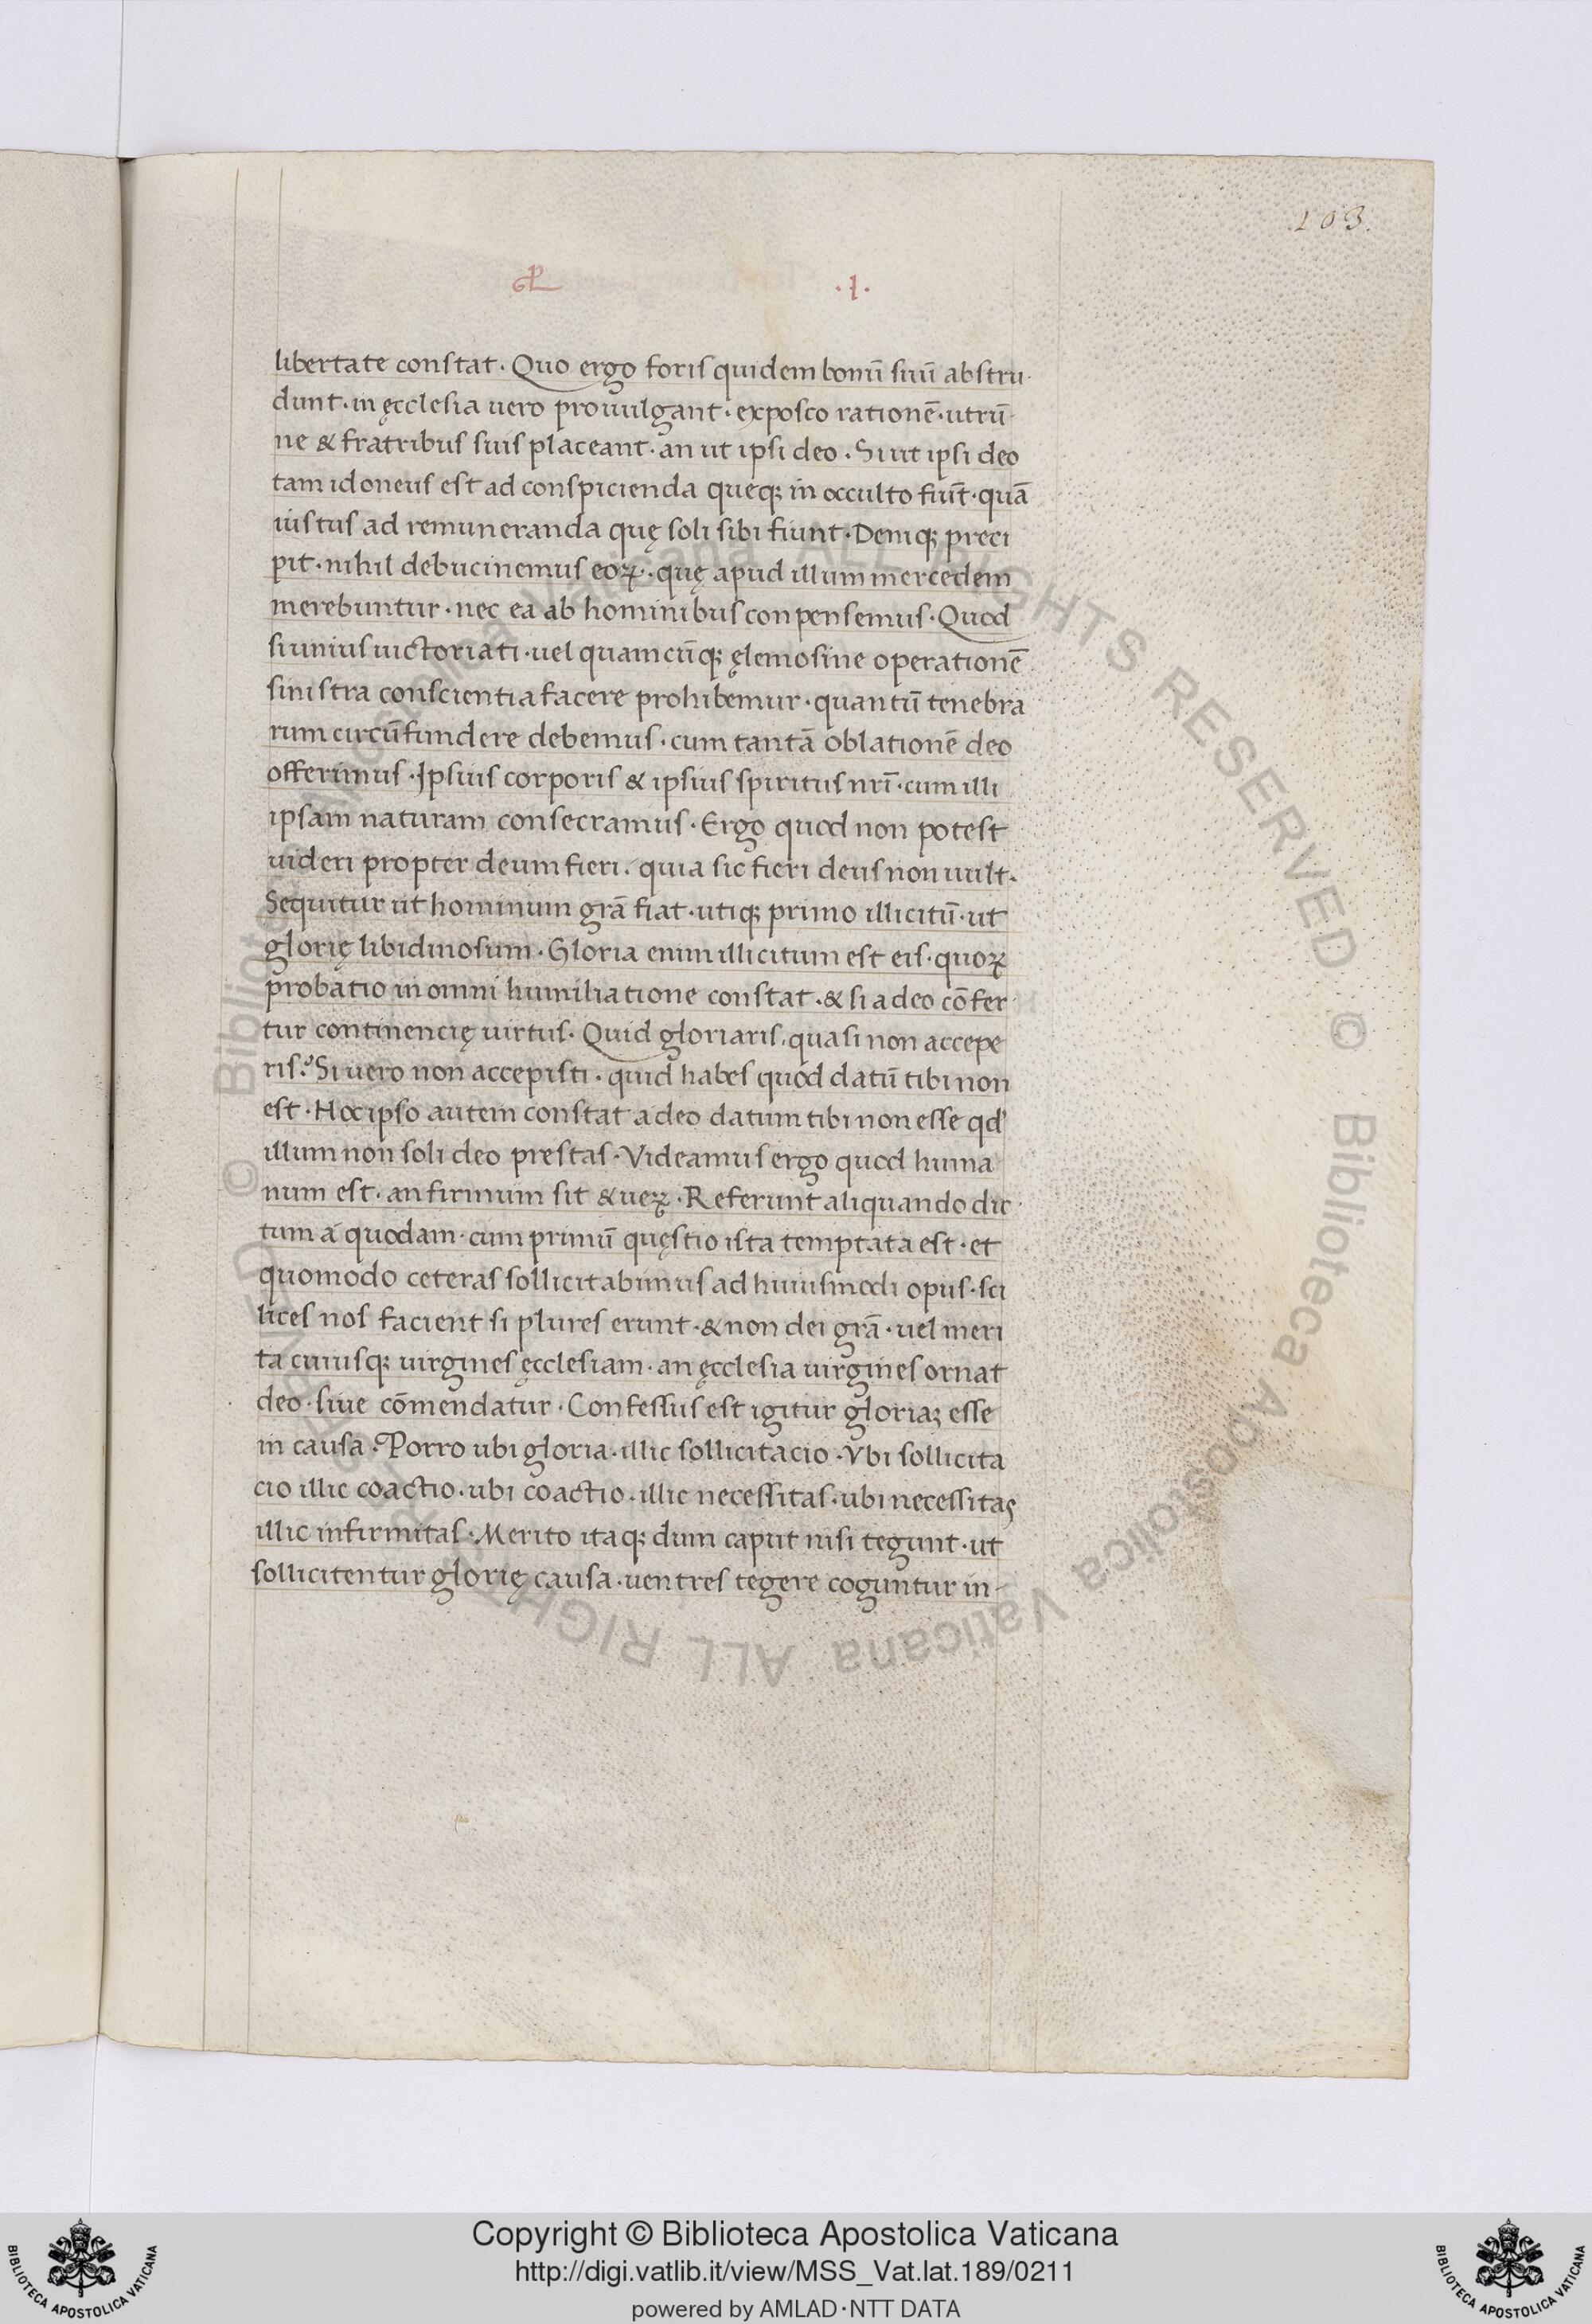 103.
.I.
libertate constat · Quo ergo foris quidem bonū suū abstru
dunt · in ęcclesia uero prouulgant · exposco rationē · utrū-
ne & fratribus suis placeant · an ut ipsi deo · Si ut ipsi deo
tam idoneus est ad conspicienda quęq; in occulto fiūt · quā
iustus ad remuneranda quę soli sibi fiunt · Deniq; preci
pit · nihil debucinemus eoꝝ · quę apud illum mercedem
merebuntur · nec ea ab hominibus conpensemus · Quod
si unius uictoriati · uel quamcūq; ęlemosine operationē
sinistra conscientia facere prohibemur · quantū tenebra
rum circūfundere debemus · cum tantā oblationē deo
offerimus · Ipsius corporis & ipsius spiritus nr̄i · cum illi
ipsam naturam consecramus · Ergo quod non potest
uideri propter deum fieri · quia sic fieri deus non uult ·
Sequitur ut hominum grā fiat · utiq; primo illicitū · ut
glorię libidinosum · Gloria enim illicitum est eis · quoꝝ
probatio in omni humiliatione constat · & si a deo cōfer
tur continencię uirtus · Quid gloriaris · quasi non accepe
ris? Si uero non accepisti · quid habes quod datū tibi non
est · Hoc ipso autem constat a deo datum tibi non esse qd'
illum non soli deo prestas · Videamus ergo quod huma
num est · an firmum sit & ueꝝ · Referunt aliquando dic
tum a quodam · cum primū quęstio ista temptata est · et
quomodo ceteras sollicitabimus ad huiusmodi opus · sci
lices nos facient si plures erunt · & non dei grā · uel meri
ta cuiusq; uirgines ęcclesiam · an ęcclesia uirgines ornat
deo · siue cōmendatur · Confessus est igitur gloriaꝫ esse
in causa · Porro ubi gloria · illic sollicitacio · Vbi sollicita
cio illic coactio · ubi coactio · illic necessitas · ubi necessitas
illic infirmitas · Merito itaq; dum caput nisi tegunt · ut
sollicitentur glorię causa · uentres tegere coguntur in-
© Biblioteca Apostolica Vaticana ALL RIGHTS RESERVED © Biblioteca Apostolica Vaticana ALL RIGHTS RESERVED
BIBLIOTECA APOSTOLICA VATICANA
Copyright © Biblioteca Apostolica Vaticana
http://digi.vatlib.it/view/MSS_Vat.lat.189/0211
powered by AMLAD·NTT DATA
BIBLIOTECA APOSTOLICA VATICANA